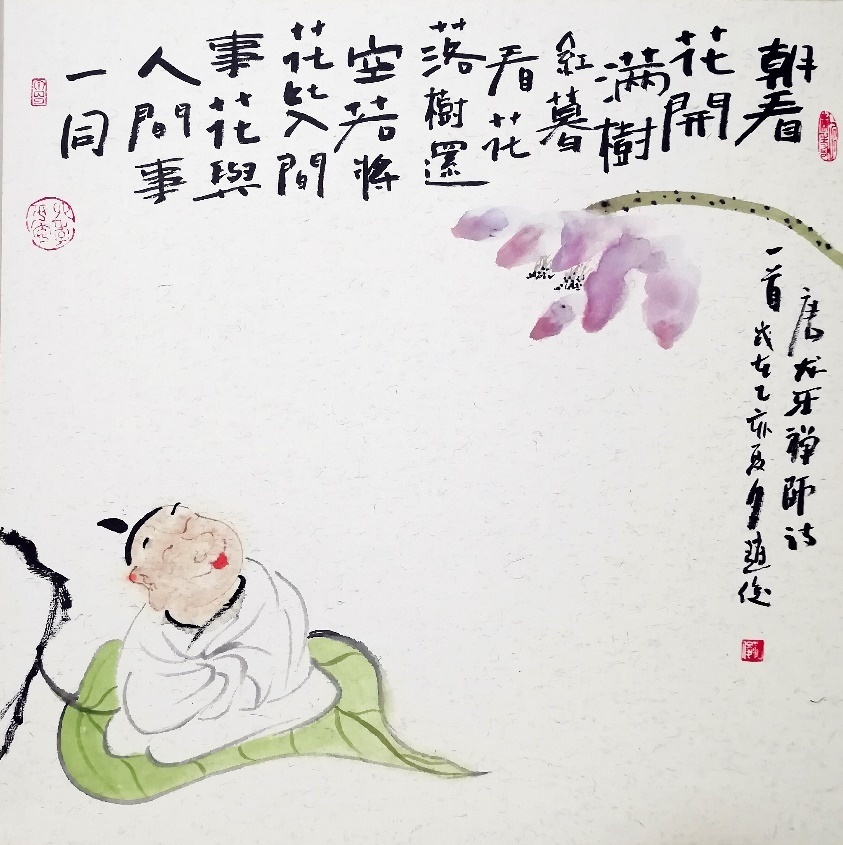 朝看
花開
滿樹
紅暮
看花
落樹還
空若將
花比人間
事花與
人間事
一同
唐龙牙禪師诗
一首 亥夏 趙